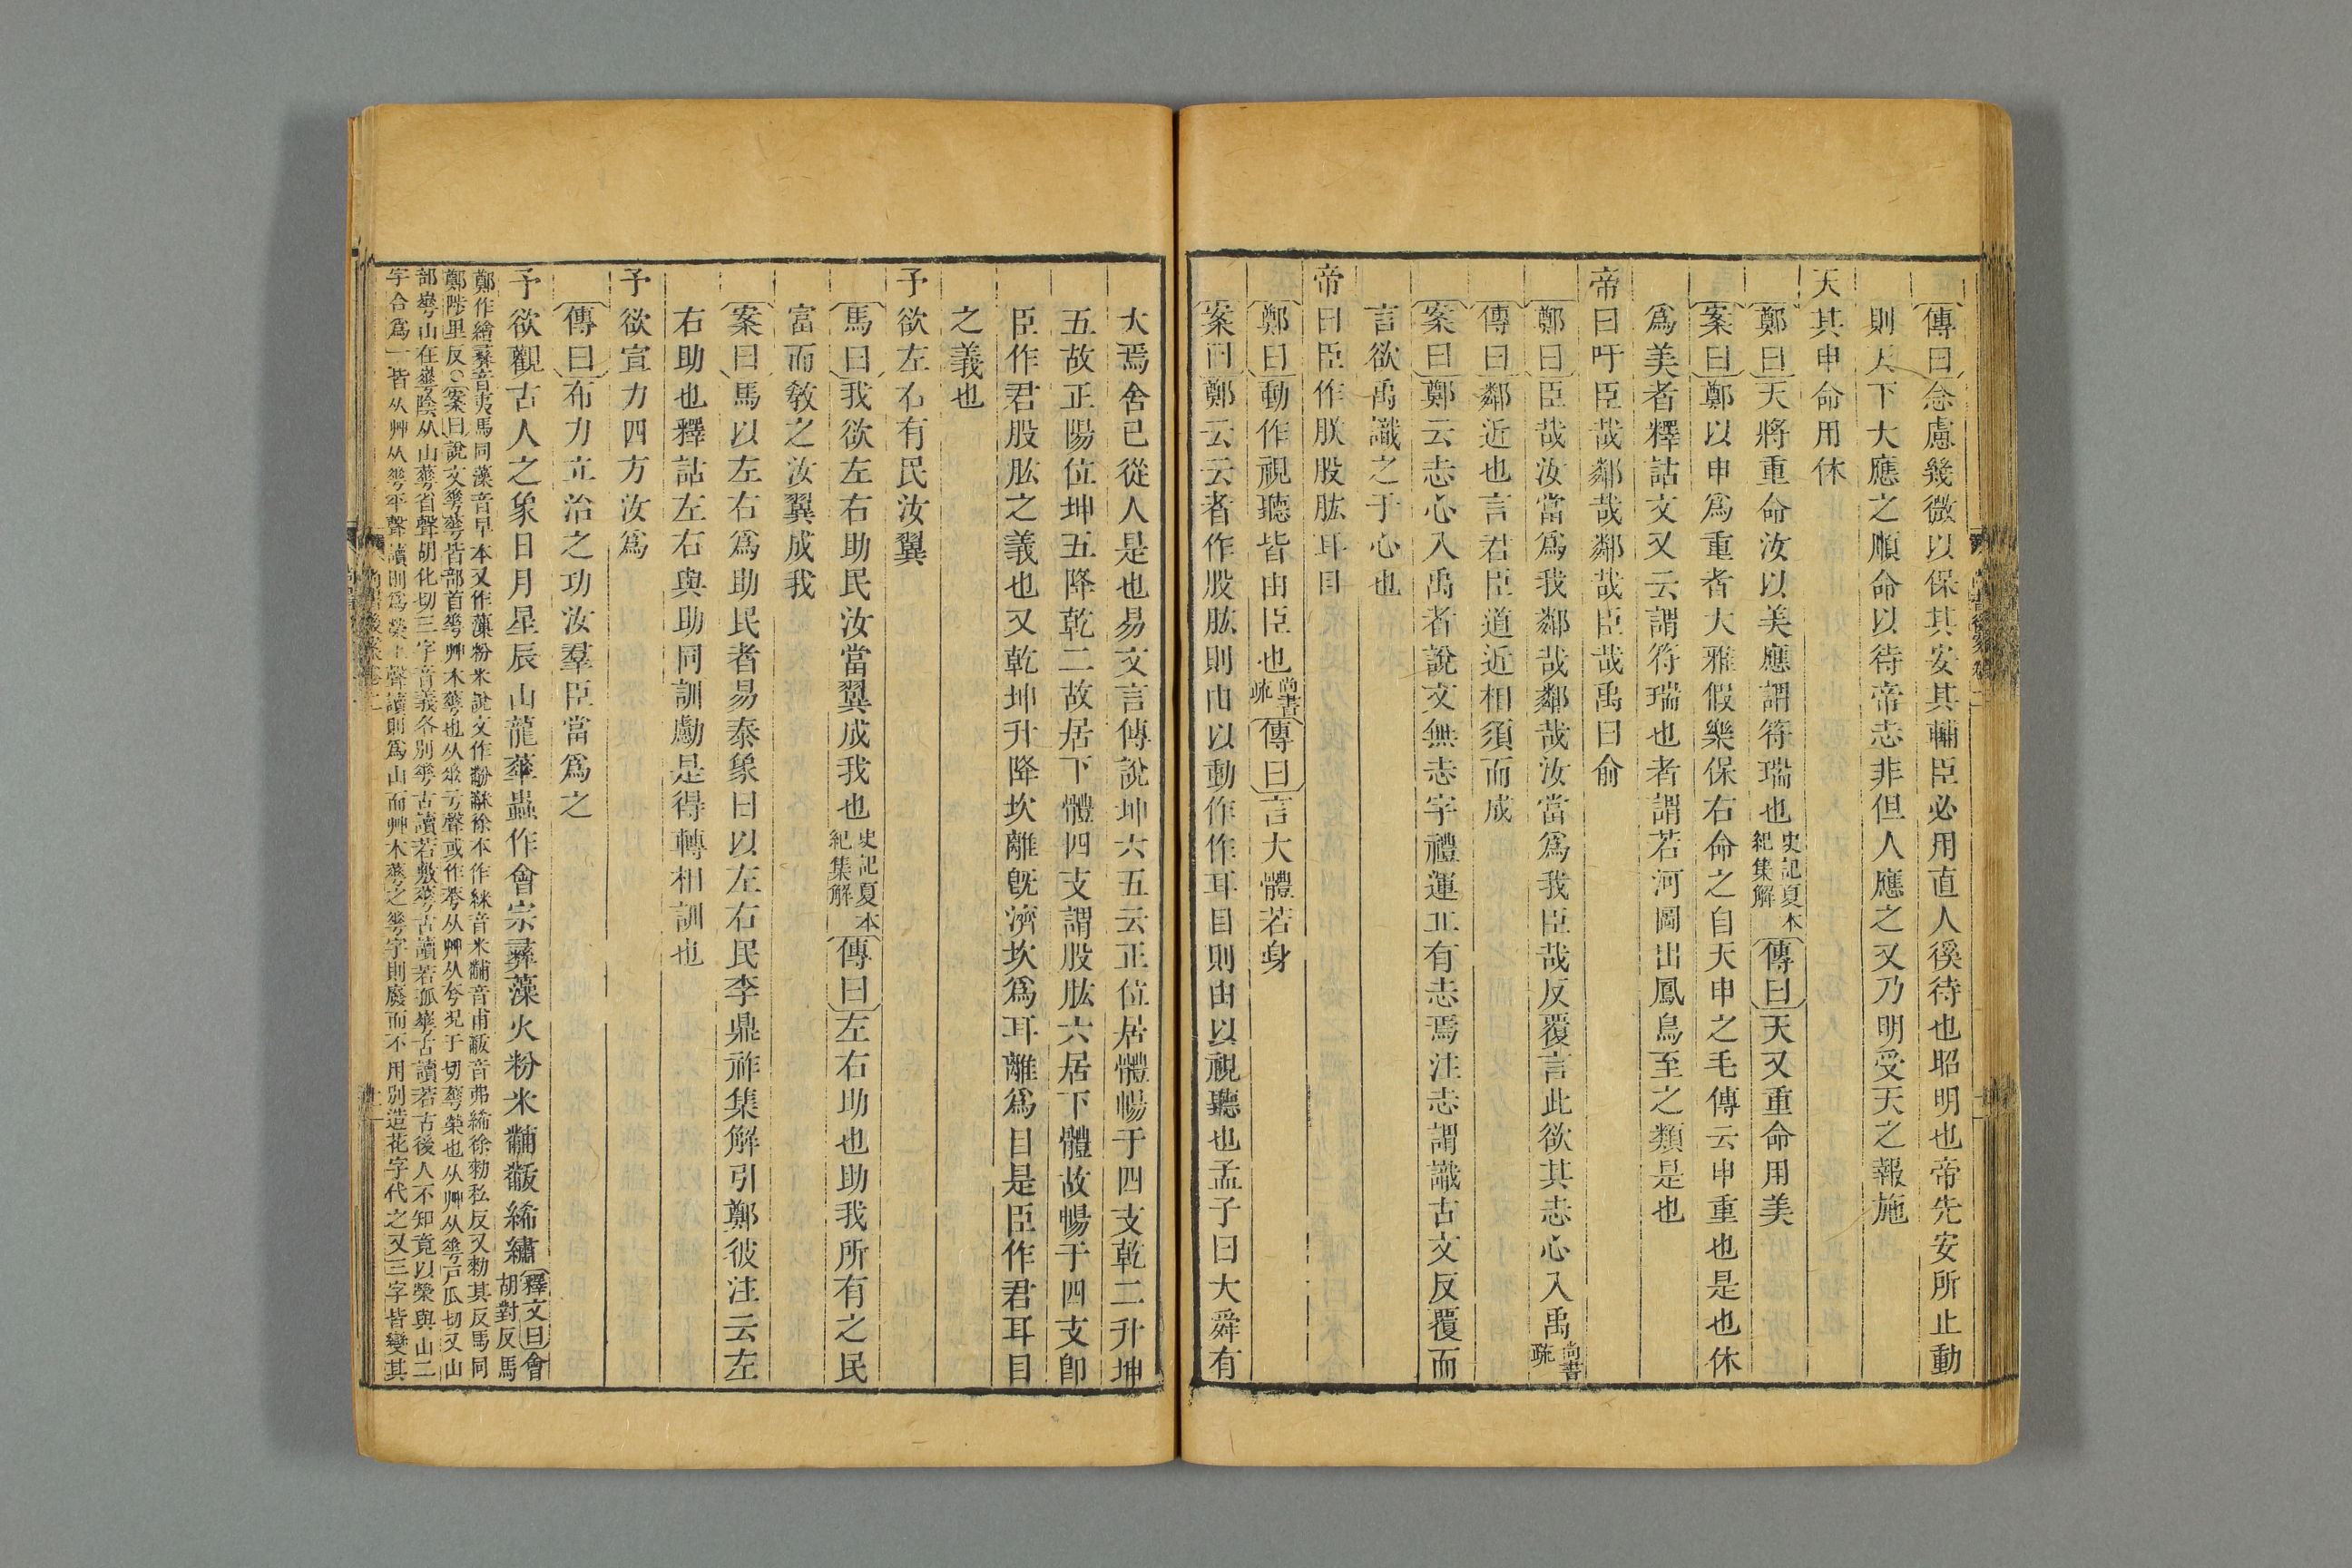 傳曰念慮幾微以保其安其輔臣必用直人徯待也昭明也帝先安所止動
則天下大應之順命以待帝志非但人應之又乃明受天之報施
天其申命用休
鄭曰天將重命汝以美應謂符瑞也史記夏本紀集解傳曰天又重命用美
案曰鄭以申爲重者大雅假樂保右命之自天申之毛傳云申重也是也休
爲美者釋詁文又云謂符瑞也者謂若河圖出鳳鳥至之類是也
帝曰吁臣哉鄰哉鄰哉臣哉禹曰俞
鄭曰臣哉汝當爲我鄰哉鄰哉汝當爲我臣哉反覆言此欲其志心入禹尚書疏
傳曰鄰近也言君臣道近相須而成
案曰鄭云志心入禹者說文無志字禮運正有志焉注志謂識古文反覆而
言欲禹識之于心也
帝曰臣作朕股肱耳目
鄭曰動作視聽皆由臣也尚書疏傳曰言大體若身
案曰鄭云云者作股肱則由以動作作耳目則由以視聽也孟子曰大舜有
大焉舍已從人是也易文言傳說坤六五云正位居體暢于四支乾二升坤
五故正陽位坤五降乾二故居下體四支謂股肱六居下體故暢于四支卽
臣作君股肱之義也又乾坤升降坎離旣濟坎爲耳離爲目是臣作君耳目
之義也
予欲左右有民汝翼
馬曰我欲左右助民汝當翼成我也史記夏本紀集解傳曰左右助也助我所有之民
富而敎之汝翼成我
案曰馬以左右爲助民者易泰象曰以左右民李鼎祚集解引鄭彼注云左
右助也釋詁左右與助同訓勴是得轉相訓也
予欲宣力四方汝爲
傳曰布力立治之功汝羣臣當爲之
予欲觀古人之象日月星辰山龍華蟲作會宗彝藻火粉米黼黻絺繡釋文曰會胡對反馬
鄭作繪彝音夷馬同藻音早本又作薻粉米說文作黺䋛徐本作絑音米黼音甫黻音弗絺徐勑私反又勑其反馬同
鄭陟里反○案曰說文𠌶華皆部首𠌶艸木華也从𠂹亏聲或作荂从艸从夸况于切華榮也从艸从𠌶戶瓜切又山
部崋山在華陰从山華省聲胡化切三字音義各別𠌶古讀若敷華古讀若孤崋古讀若古後人不知竟以榮與山二
字合爲一皆从艸从𠌶平聲讀則爲榮上聲讀則爲山而艸木華之𠌶字則廢而不用別造花字代之又三字皆變其